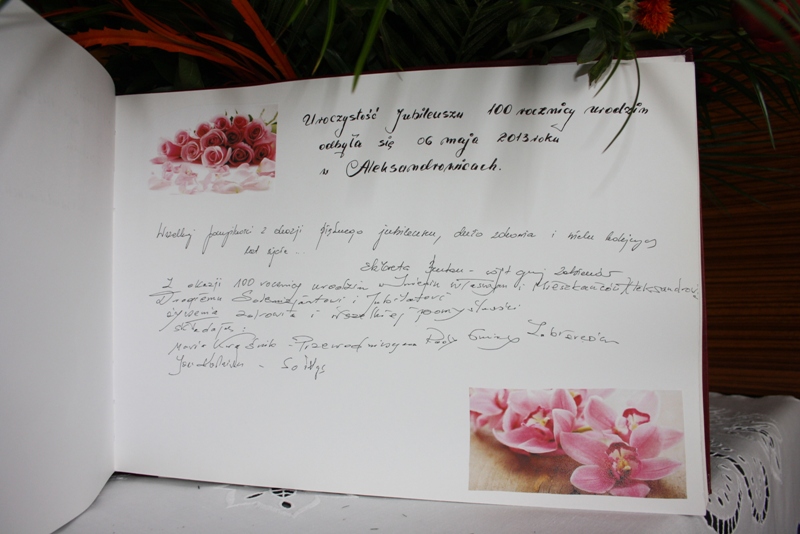 Uroczystość Jubileuszu 100 rocznicy urodzin
odbyła się 06 maja 2013 roku
w Aleksandrowicach.
Wszelkiej pomyślności z okazji pięknego jubileuszu, dużo zdrowia i wielu kolejnych
lat życia...
Elżbieta - wójt gminy Zabierzów
Z okazji 100 rocznicy urodzin w Imieniu Własnym i Mieszkańców Aleksandrowic
Drogiemu Solenizantowi i Jubilatowi
życzenia zdrowia i wszelkiej pomyślności
składają:
Maria - Przewodnicząca Rady Gminy Zabierzów
Jan - Sołtys